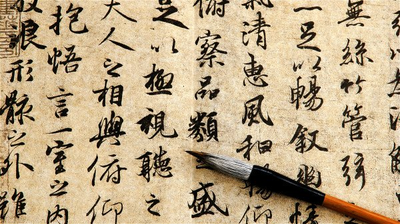 引以為流
無絲竹管弦
足以暢敘幽
氣清惠風和暢仰
俯察品類之盛
足以極視聽之
夫人之相與俯仰
抱悟言一室之內
放浪形骸之外雖